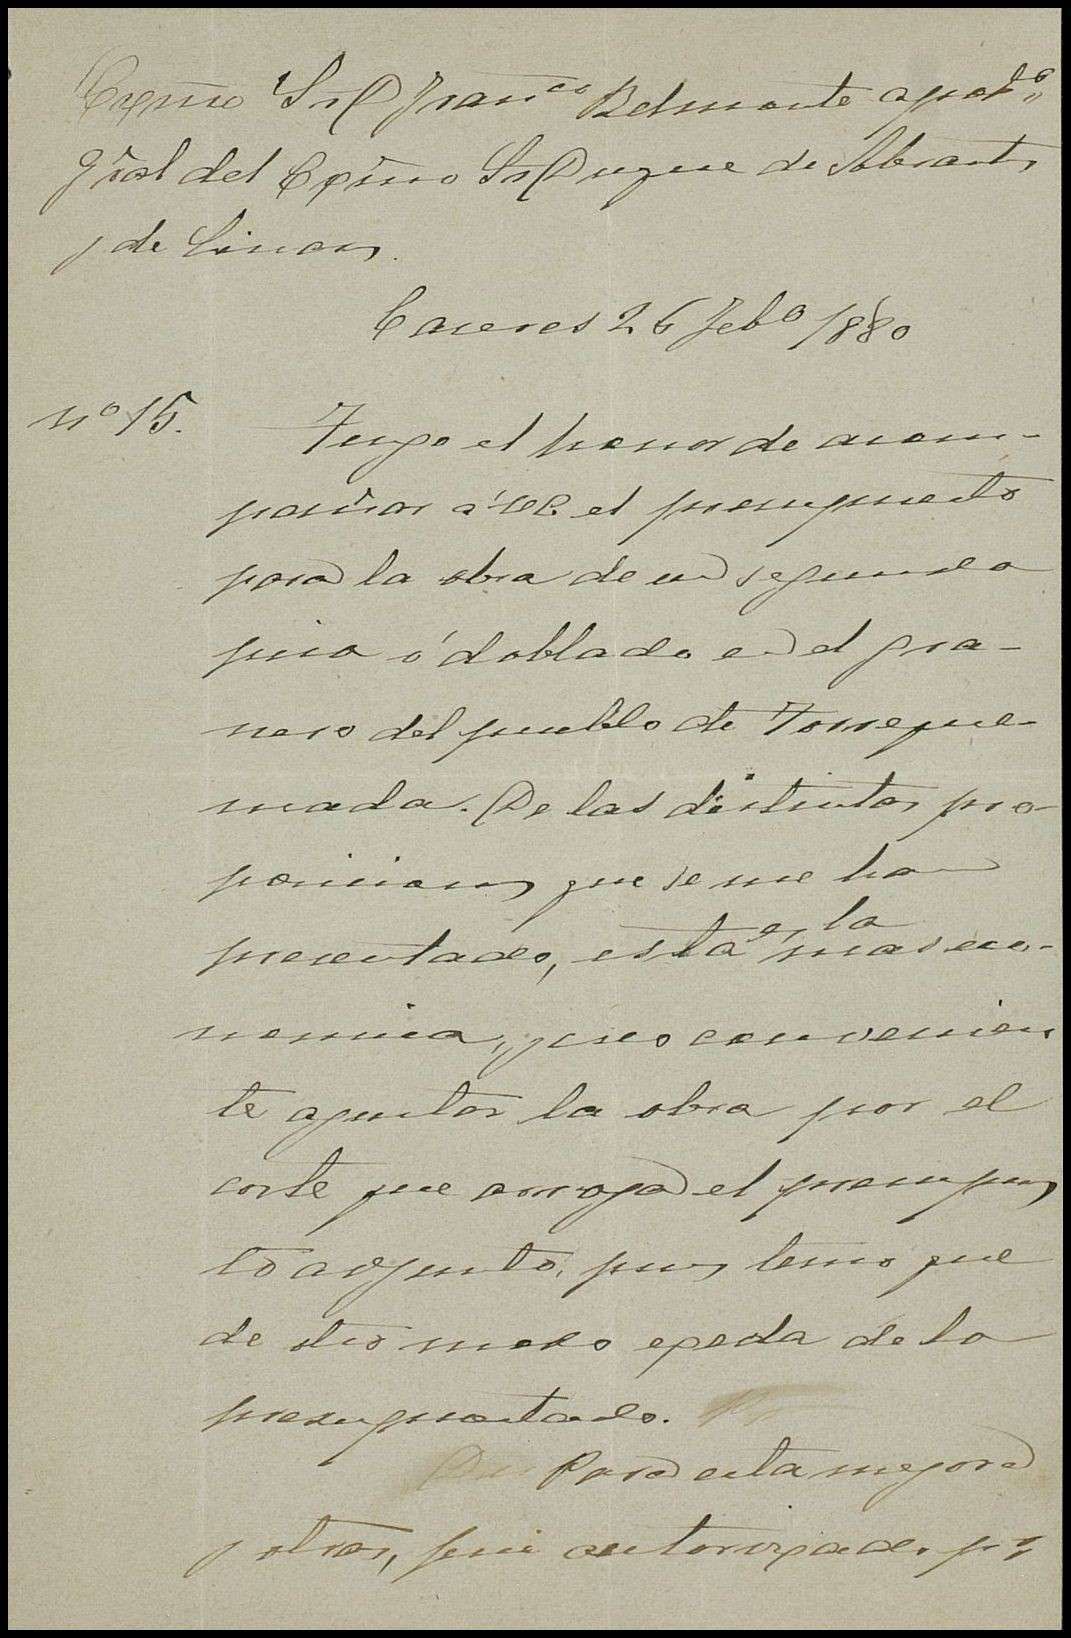 Exmo Sr D Franco Belmonte apodo
Gral del Exmo Sr Duque de Abrantes
y de Linares.
Caceres 26 Febo /880
No 15. Tengo el honor de acom-
pañar á VE. el presupuesto
para la obra de un segundo
piso ó doblado en el gra-
nero del pueblo de Torreque-
mada. De las distintas pro-
posiciones que se me han
presentado, esta es la mas eco-
nomica, y creo convenien
te ajustar la obra por el
coste que arroja el presupues
to adjunto, pues temo que
de otro modo exceda de lo
presupuestado.
Para esta mejora
y otras, fui autorizado pr